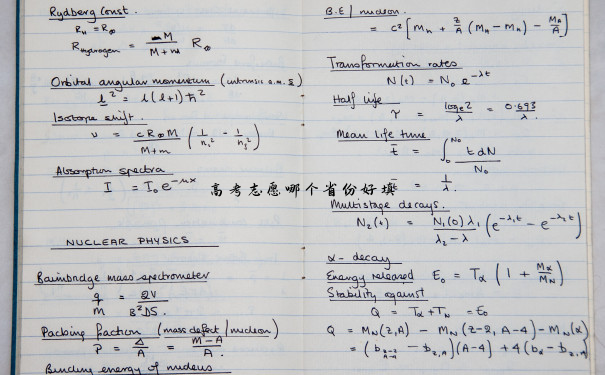 Rydberg Const.
R∞ = R∞
R hydrogen = M / (M + m) R∞
Orbital angular momentum (intrinsic a.m. s)
l² = l(l+1)ħ²
Isotope shift.
ν = cR∞M / (M+m) (1/n₁² - 1/n₂²)
Absorption spectra
I = I₀e^-μx
NUCLEAR PHYSICS
Bainbridge mass spectrometer
q/m = 2V / B²DS.
Packing fraction (mass defect / nucleon)
P = Δ/A = (M-A)/A.
Binding energy of nucleus
B.E / nucleon.
= c² [Mn + Z/A (MH - Mn) - MA/A]
Transformation rates
N(t) = N₀ e^-λt
Half life
τ = log e 2 / λ = 0.693 / λ.
Mean life time
t̄ = ∫₀^N₀ t dN / N₀
高考志愿哪个省份好填
t̄ = 1/λ.
Multistage decays.
N₂(t) = N₁(0)λ₁ / (λ₂ - λ) (e^-λ₁t - e^-λ₂t)
α - decay
Energy released E₀ = Tα (1 + Mα/MN)
Stability against
Q = Tα + TN = E₀
Q = MN(Z,A) - MN(Z-2, A-4) - MN(α)